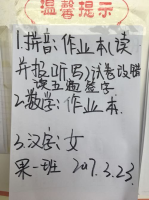 温馨提示
1.拼音:作业本(读
并报听写)试卷改错
读五遍签字
2.数学:作业本.
3.汉字:女
果一班 2017.3.23.